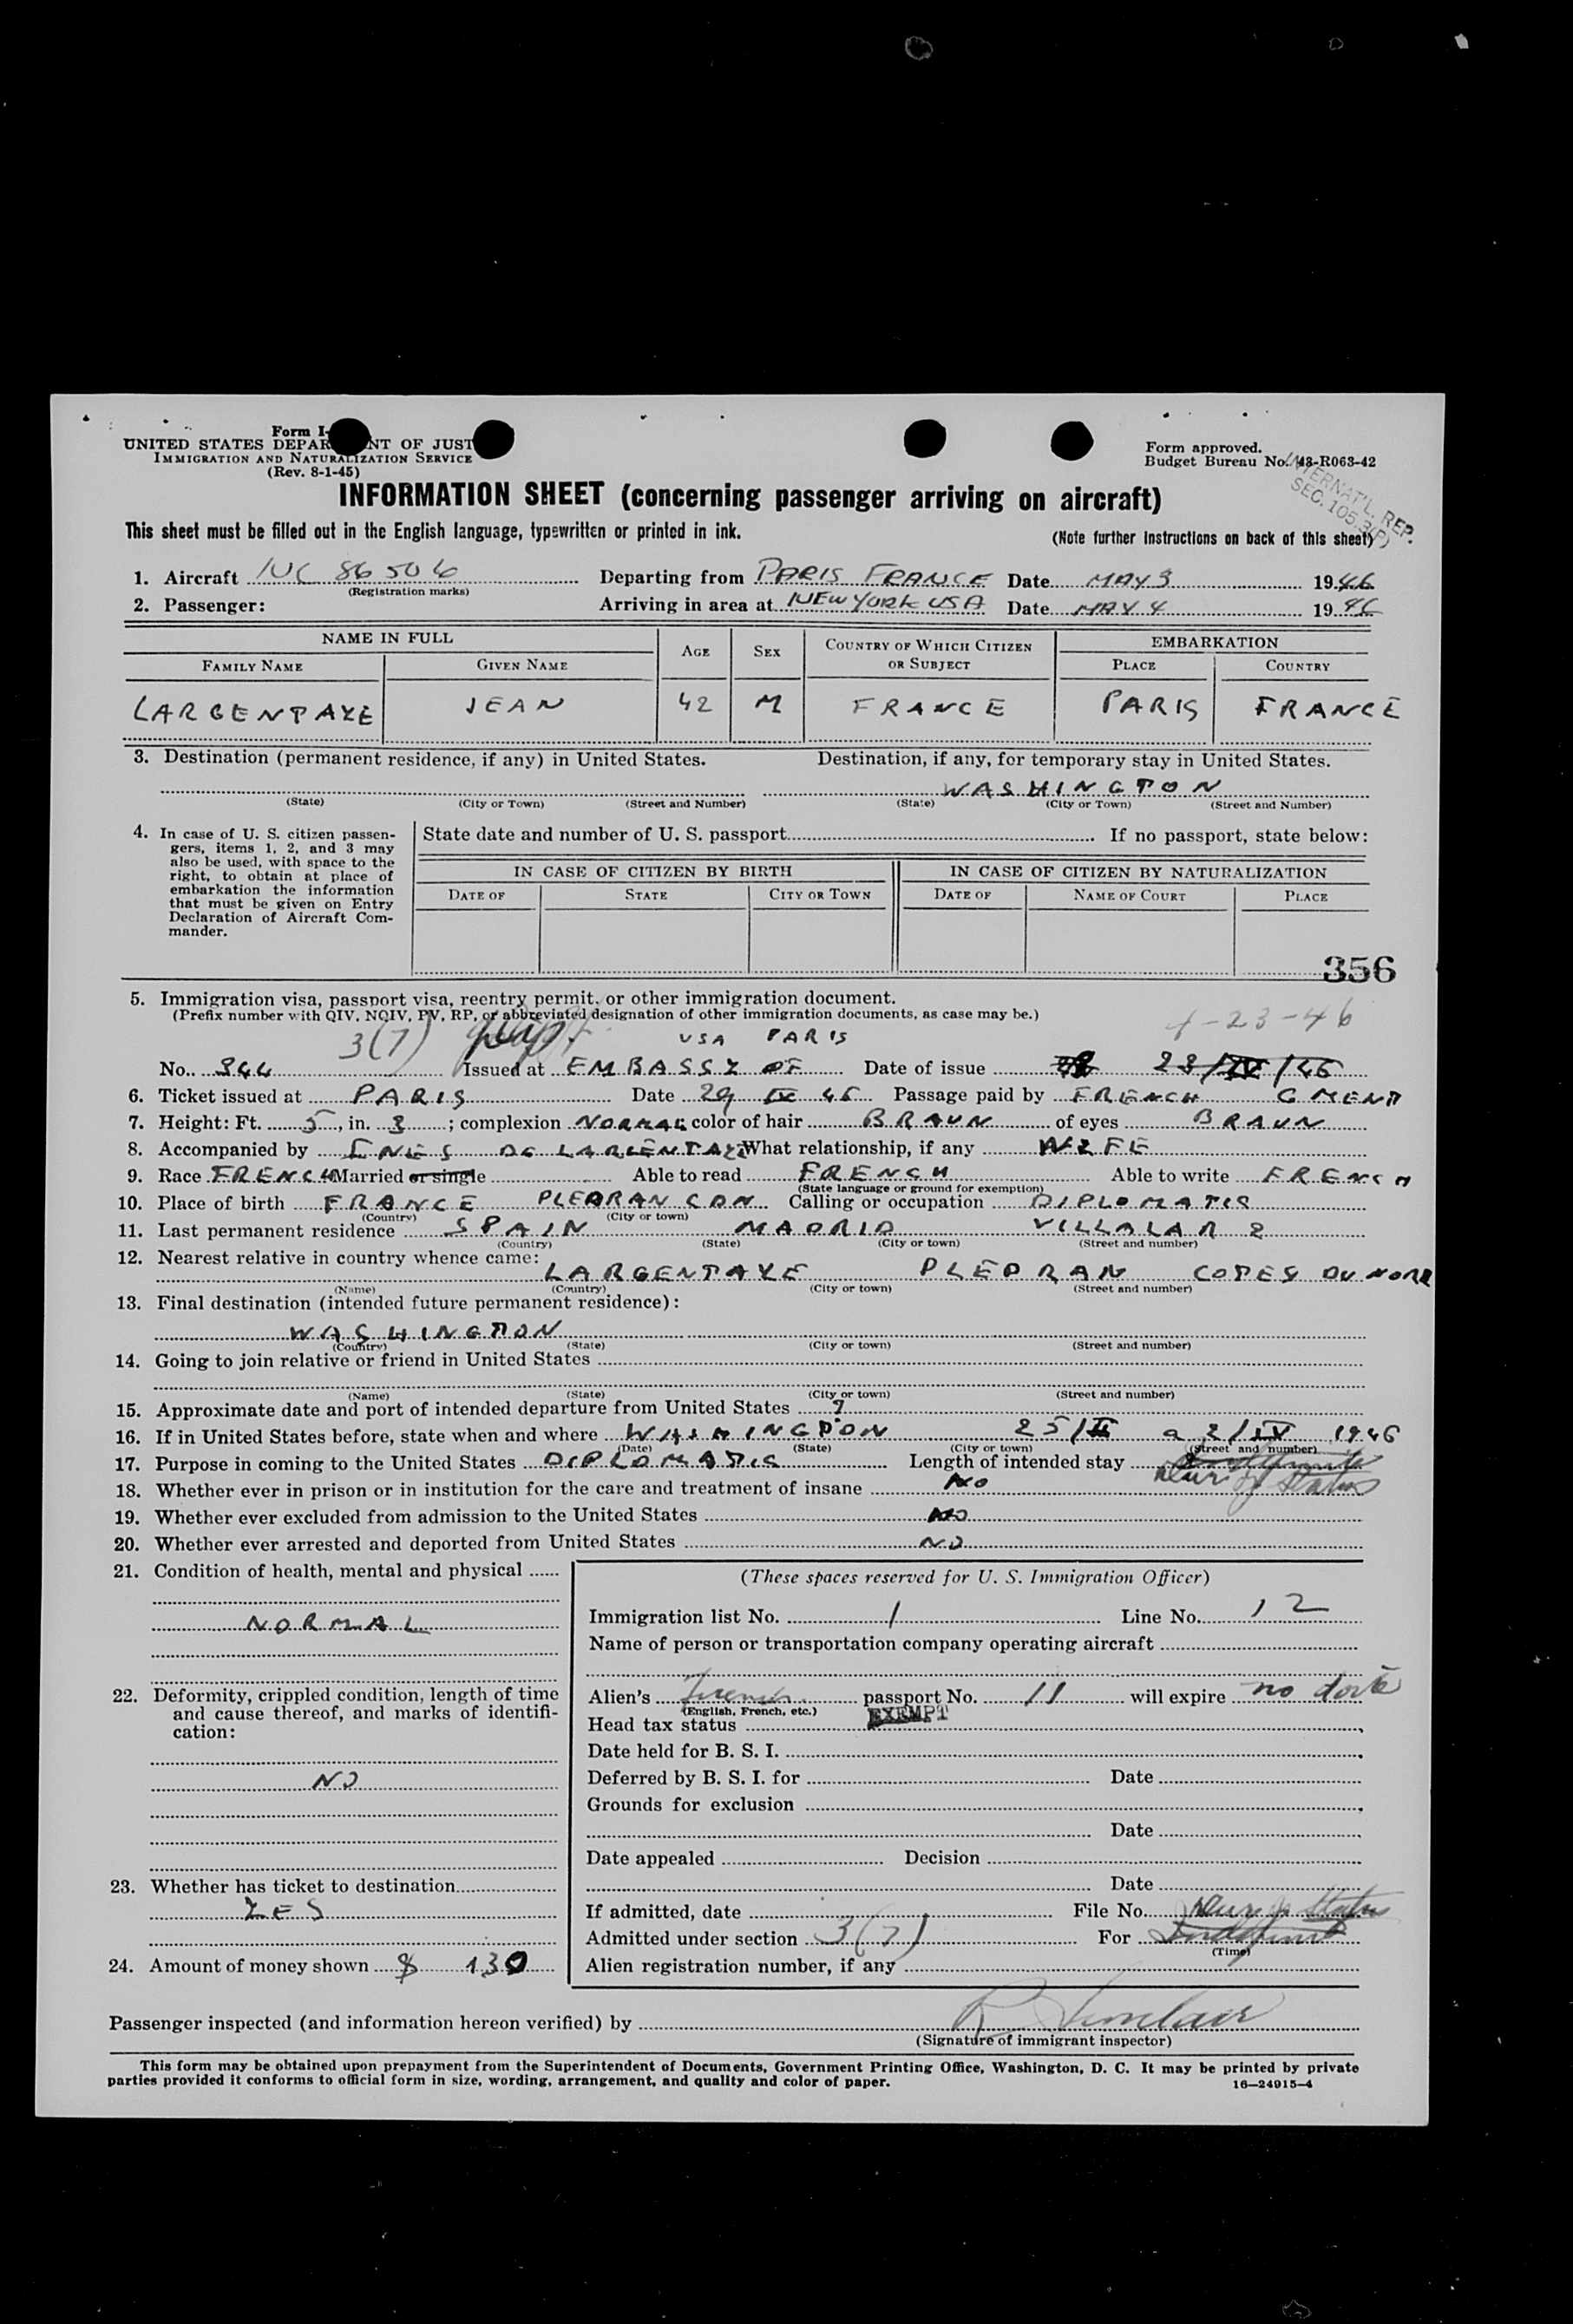 Form I-
UNITED STATES DEPAR NT OF JUST
IMMIGRATION AND NATURALIZATION SERVICE
(Rev. 8-1-45)
Form approved.
Budget Bureau No. 43-R063-42
INTERNAT'L. REP.
SEC. 105.3(P)
INFORMATION SHEET (concerning passenger arriving on aircraft)
This sheet must be filled out in the English language, typewritten or printed in ink.
(Note further instructions on back of this sheet)
1. Aircraft NC 86506 Departing from PARIS FRANCE Date MAY 3 1946
(Registration marks)
2. Passenger: Arriving in area at NEW YORK USA Date MAY 4 1946
NAME IN FULL AGE SEX COUNTRY OF WHICH CITIZEN OR SUBJECT EMBARKATION
FAMILY NAME GIVEN NAME PLACE COUNTRY
LARGENTAYE JEAN 42 M FRANCE PARIS FRANCE
3. Destination (permanent residence, if any) in United States. Destination, if any, for temporary stay in United States.
WASHINGTON
(State) (City or Town) (Street and Number) (State) (City or Town) (Street and Number)
4. In case of U. S. citizen passen-
gers, items 1, 2, and 3 may
also be used, with space to the
right, to obtain at place of
embarkation the information
that must be given on Entry
Declaration of Aircraft Com-
mander.
State date and number of U. S. passport If no passport, state below:
IN CASE OF CITIZEN BY BIRTH IN CASE OF CITIZEN BY NATURALIZATION
DATE OF STATE CITY OR TOWN DATE OF NAME OF COURT PLACE
356
5. Immigration visa, passport visa, reentry permit, or other immigration document.
(Prefix number with QIV, NQIV, PV, RP, or abbreviated designation of other immigration documents, as case may be.)
3(7) USA PARIS 4-23-46
No. 344 Issued at EMBASSY OF Date of issue 23/IV/46
6. Ticket issued at PARIS Date 29 IV 46 Passage paid by FRENCH GMENT
7. Height: Ft. 5, in. 3; complexion NORMAL color of hair BRAUN of eyes BRAUN
8. Accompanied by INES DE LARGENTAYE What relationship, if any WIFE
9. Race FRENCH Married or single Able to read FRENCH Able to write FRENCH
(State language or ground for exemption)
10. Place of birth FRANCE PLEDRAN CDN Calling or occupation DIPLOMATIC
(Country) (City or town)
11. Last permanent residence SPAIN MADRID VILLALAR 2
(Country) (State) (City or town) (Street and number)
12. Nearest relative in country whence came:
LARGENTAYE PLEDRAN COTES DU NORD
(Name) (Country) (City or town) (Street and number)
13. Final destination (intended future permanent residence):
WASHINGTON
(Country) (State) (City or town) (Street and number)
14. Going to join relative or friend in United States
(Name) (State) (City or town) (Street and number)
15. Approximate date and port of intended departure from United States ?
16. If in United States before, state when and where WASHINGTON 25/II a 2/IV 1946
(Date) (State) (City or town) (Street and number)
17. Purpose in coming to the United States DIPLOMATIC Length of intended stay Dur of Status
18. Whether ever in prison or in institution for the care and treatment of insane NO
19. Whether ever excluded from admission to the United States NO
20. Whether ever arrested and deported from United States NO
21. Condition of health, mental and physical
NORMAL
22. Deformity, crippled condition, length of time
and cause thereof, and marks of identifi-
cation:
NO
23. Whether has ticket to destination
YES
24. Amount of money shown $ 130
(These spaces reserved for U. S. Immigration Officer)
Immigration list No. 1 Line No. 12
Name of person or transportation company operating aircraft
Alien's French passport No. 11 will expire no date
(English, French, etc.)
Head tax status EXEMPT
Date held for B. S. I.
Deferred by B. S. I. for Date
Grounds for exclusion
Date
Date appealed Decision
Date
If admitted, date File No. Dur of Status
Admitted under section 3(7) For
(Time)
Alien registration number, if any
Passenger inspected (and information hereon verified) by R Sinclair
(Signature of immigrant inspector)
This form may be obtained upon prepayment from the Superintendent of Documents, Government Printing Office, Washington, D. C. It may be printed by private
parties provided it conforms to official form in size, wording, arrangement, and quality and color of paper.
16—24915-4